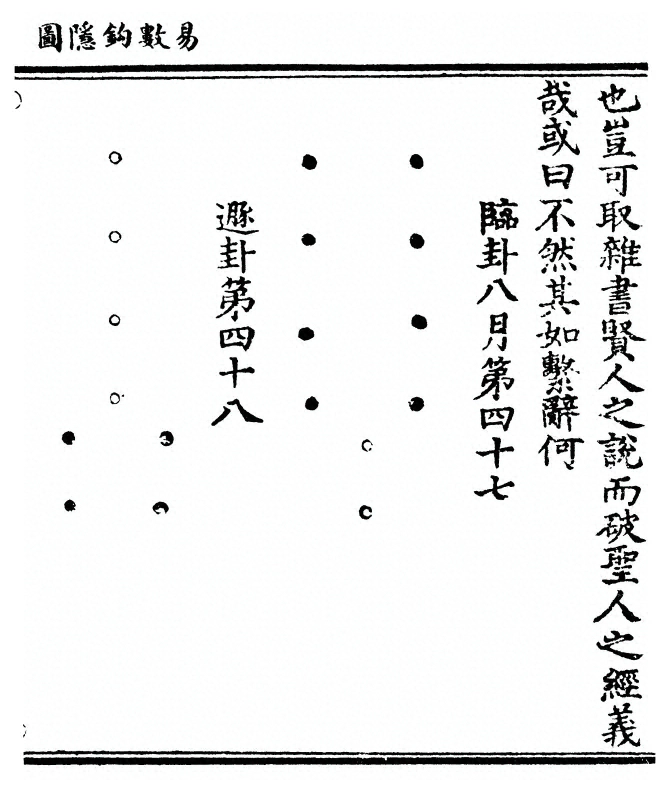 易數鈎隱圖
也豈可取雜書賢人之說而破聖人之經義
哉或曰不然其如繫辭何
臨卦八月第四十七
遯卦第四十八